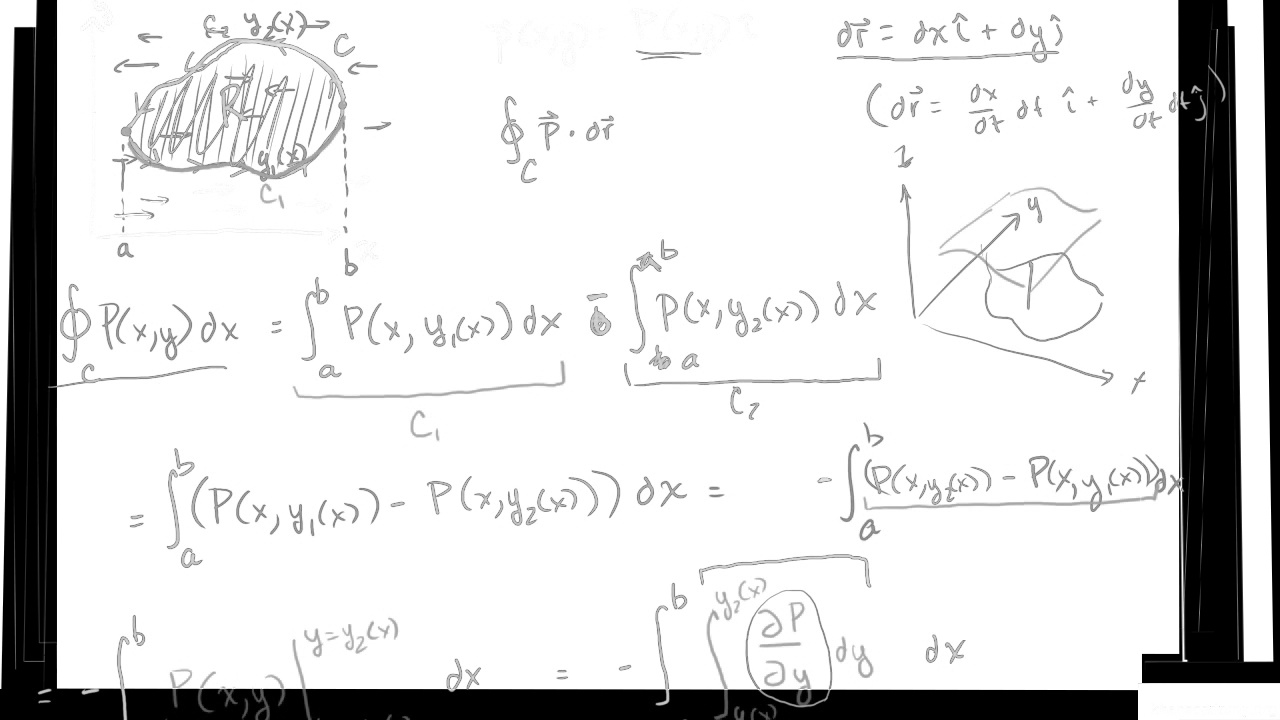 C₂ y₂(x) C
R
y₁(x)
C₁
a b
P(x,y) = P(x,y) î
∮_C P⃗ · dr⃗
dr⃗ = dx î + dy ĵ
(dr⃗ = dx/dt dt î + dy/dt dt ĵ)
z
y
x
∮_C P(x,y) dx = ∫_a^b P(x, y₁(x)) dx - ∫_a^b P(x, y₂(x)) dx
C₁ C₂
= ∫_a^b (P(x, y₁(x)) - P(x, y₂(x))) dx = - ∫_a^b (P(x, y₂(x)) - P(x, y₁(x))) dx
= - ∫^b P(x,y) |^{y=y₂(x)} dx = - ∫^b ∫_{y₁(x)}^{y₂(x)} ∂P/∂y dy dx